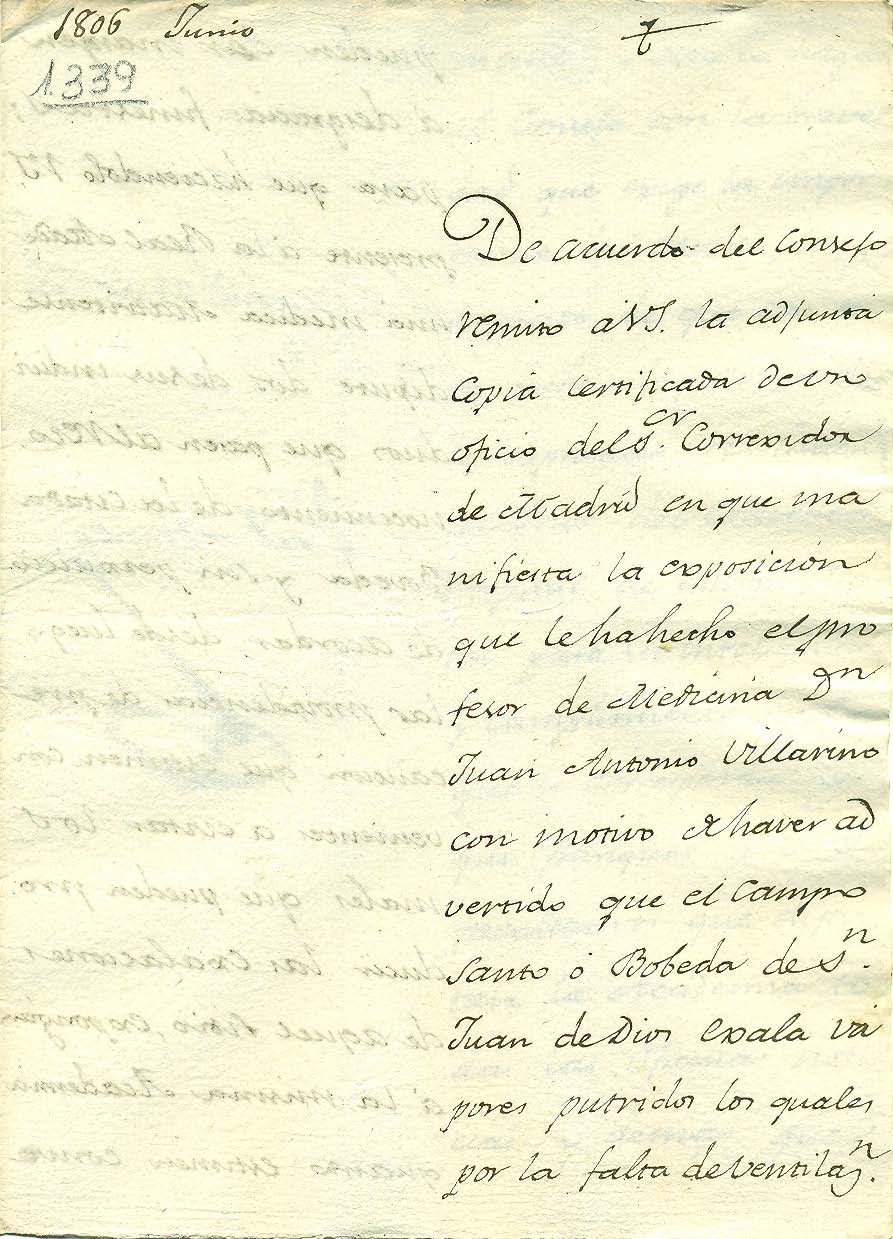 1806 Junio
1.339
De acuerdo del Consejo
remito a VS. la adjunta
Copia certificada de un
oficio del Sr. Correxidor
de Madrid en que ma
nifiesta la exposicion
que le ha hecho el pro
fesor de Medicina Dn
Juan Antonio Villarino
con motivo de haver ad
vertido que el Campo
Santo ó Bobeda de Sn.
Juan de Dios exala va
pores putridos los quales
por la falta de ventilan.